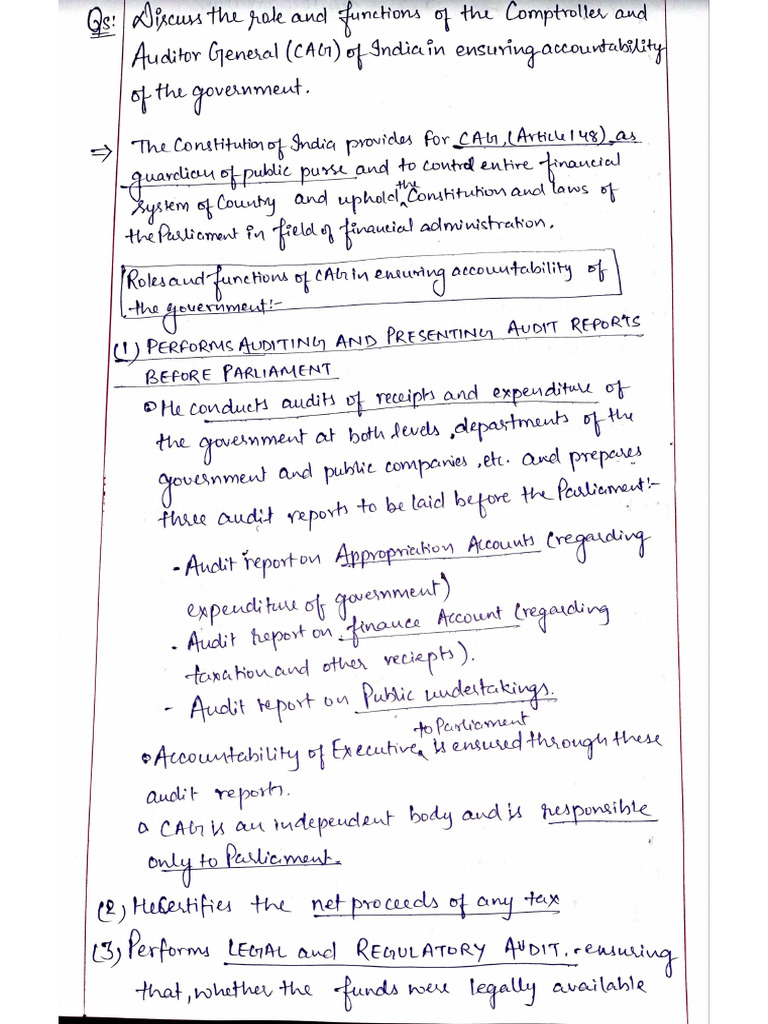 Qs: Discuss the role and functions of the Comptroller and
Auditor General (CAG) of India in ensuring accountability
of the government.
⇒ The Constitution of India provides for CAG, (Article 148) as
guardian of public purse and to control entire financial
system of Country and uphold the Constitution and laws of
the Parliament in field of financial administration.
Roles and functions of CAG in ensuring accountability of
the government:-
(1) PERFORMS AUDITING AND PRESENTING AUDIT REPORTS
BEFORE PARLIAMENT
He conducts audits of receipts and expenditure of
the government at both levels, departments of the
government and public companies, etc. and prepares
three audit reports to be laid before the Parliament:-
- Audit report on Appropriation Accounts (regarding
expenditure of government)
- Audit report on finance Account (regarding
taxation and other reciepts).
- Audit report on Public undertakings.
Accountability of Executive to Parliament is ensured through these
audit reports.
CAG is an independent body and is responsible
only to Parliament.
(2) He Certifies the net proceeds of any tax
(3) Performs LEGAL and REGULATORY AUDIT. ensuring
that, whether the funds were legally available